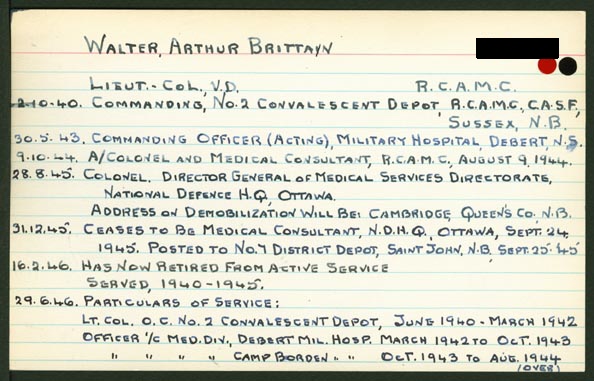 WALTER, ARTHUR BRITTAIN
LIEUT.-COL., V.D. R.C.A.M.C.
2.10.40. COMMANDING, NO. 2 CONVALESCENT DEPOT, R.C.A.M.C., C.A.S.F.,
SUSSEX, N.B.
30.5.43. COMMANDING OFFICER (ACTING), MILITARY HOSPITAL, DEBERT, N.S.
9.10.44. A/COLONEL AND MEDICAL CONSULTANT, R.C.A.M.C., AUGUST 9, 1944.
28.8.45. COLONEL. DIRECTOR GENERAL OF MEDICAL SERVICES DIRECTORATE,
NATIONAL DEFENCE H.Q., OTTAWA.
ADDRESS ON DEMOBILIZATION WILL BE: CAMBRIDGE, QUEEN'S CO., N.B.
31.12.45. CEASES TO BE MEDICAL CONSULTANT, N.D.H.Q., OTTAWA, SEPT. 24
1945. POSTED TO NO. 7 DISTRICT DEPOT, SAINT JOHN, N.B. SEPT. 25-45
16.2.46. HAS NOW RETIRED FROM ACTIVE SERVICE
SERVED, 1940-1945.
29.6.46. PARTICULARS OF SERVICE:
LT. COL. O.C. NO. 2 CONVALESCENT DEPOT, JUNE 1940 - MARCH 1942
OFFICER I/C MED. DIV., DEBERT MIL. HOSP. MARCH 1942 TO OCT. 1943
" " " " CAMP BORDEN " " OCT. 1943 TO AUG. 1944
(OVER)